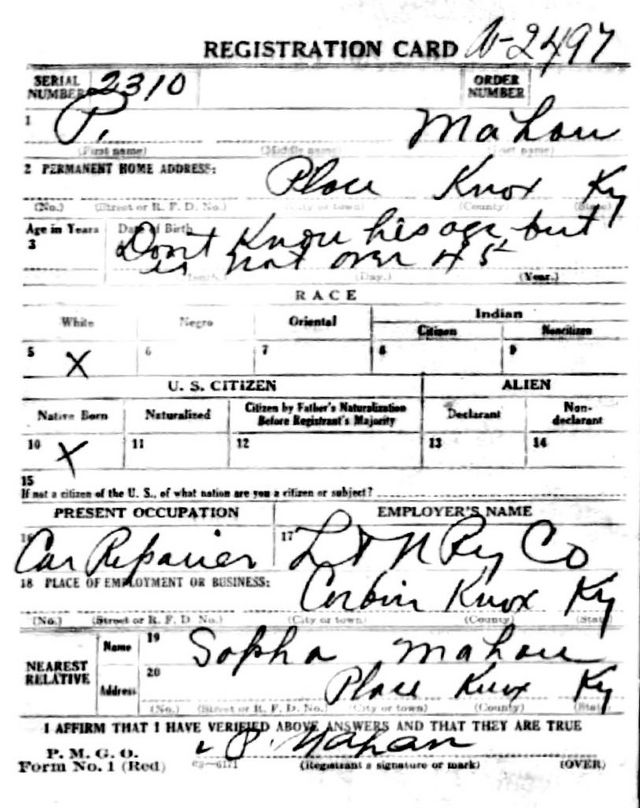 REGISTRATION CARD A-2497
SERIAL NUMBER 2310 ORDER NUMBER
1 P. Mahan
(First name) (Middle name) (Last name)
2 PERMANENT HOME ADDRESS:
Place Knox Ky
(No.) (Street or R. F. D. No.) (City or town) (County) (State)
Age in Years Date of Birth
3 Dont Know his age but
is not over 45
(Month.) (Day.) (Year.)
RACE
White Negro Oriental Indian
Citizen Noncitizen
5 X 6 7 8 9
U. S. CITIZEN ALIEN
Native Born Naturalized Citizen by Father's Naturalization Before Registrant's Majority Declarant Non-declarant
10 X 11 12 13 14
15
If not a citizen of the U. S., of what nation are you a citizen or subject?
PRESENT OCCUPATION EMPLOYER'S NAME
16 Car Repairer 17 L & N Ry Co
18 PLACE OF EMPLOYMENT OR BUSINESS:
Corbin Knox Ky
(No.) (Street or R. F. D. No.) (City or town) (County) (State)
NEAREST RELATIVE
Name 19 Sopha Mahan
Address 20 Place Knox Ky
(No.) (Street or R. F. D. No.) (City or town) (County) (State)
I AFFIRM THAT I HAVE VERIFIED ABOVE ANSWERS AND THAT THEY ARE TRUE
P. M. G. O.
Form No. 1 (Red) P. Mahan
(Registrant's signature or mark) (OVER)